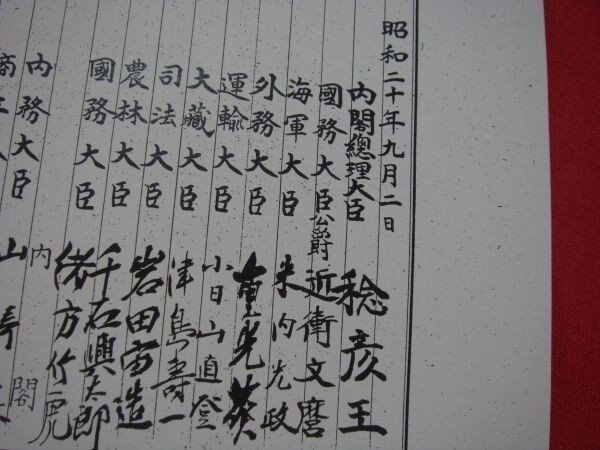 昭和二十年九月二日
内閣總理大臣 稔彦王
國務大臣公爵 近衛文麿
海軍大臣 米内光政
外務大臣 重光葵
運輸大臣 小日山直登
大藏大臣 津島壽一
司法大臣 岩田宙造
農林大臣 千石興太郎
國務大臣 緒方竹虎
内務大臣 山
内閣